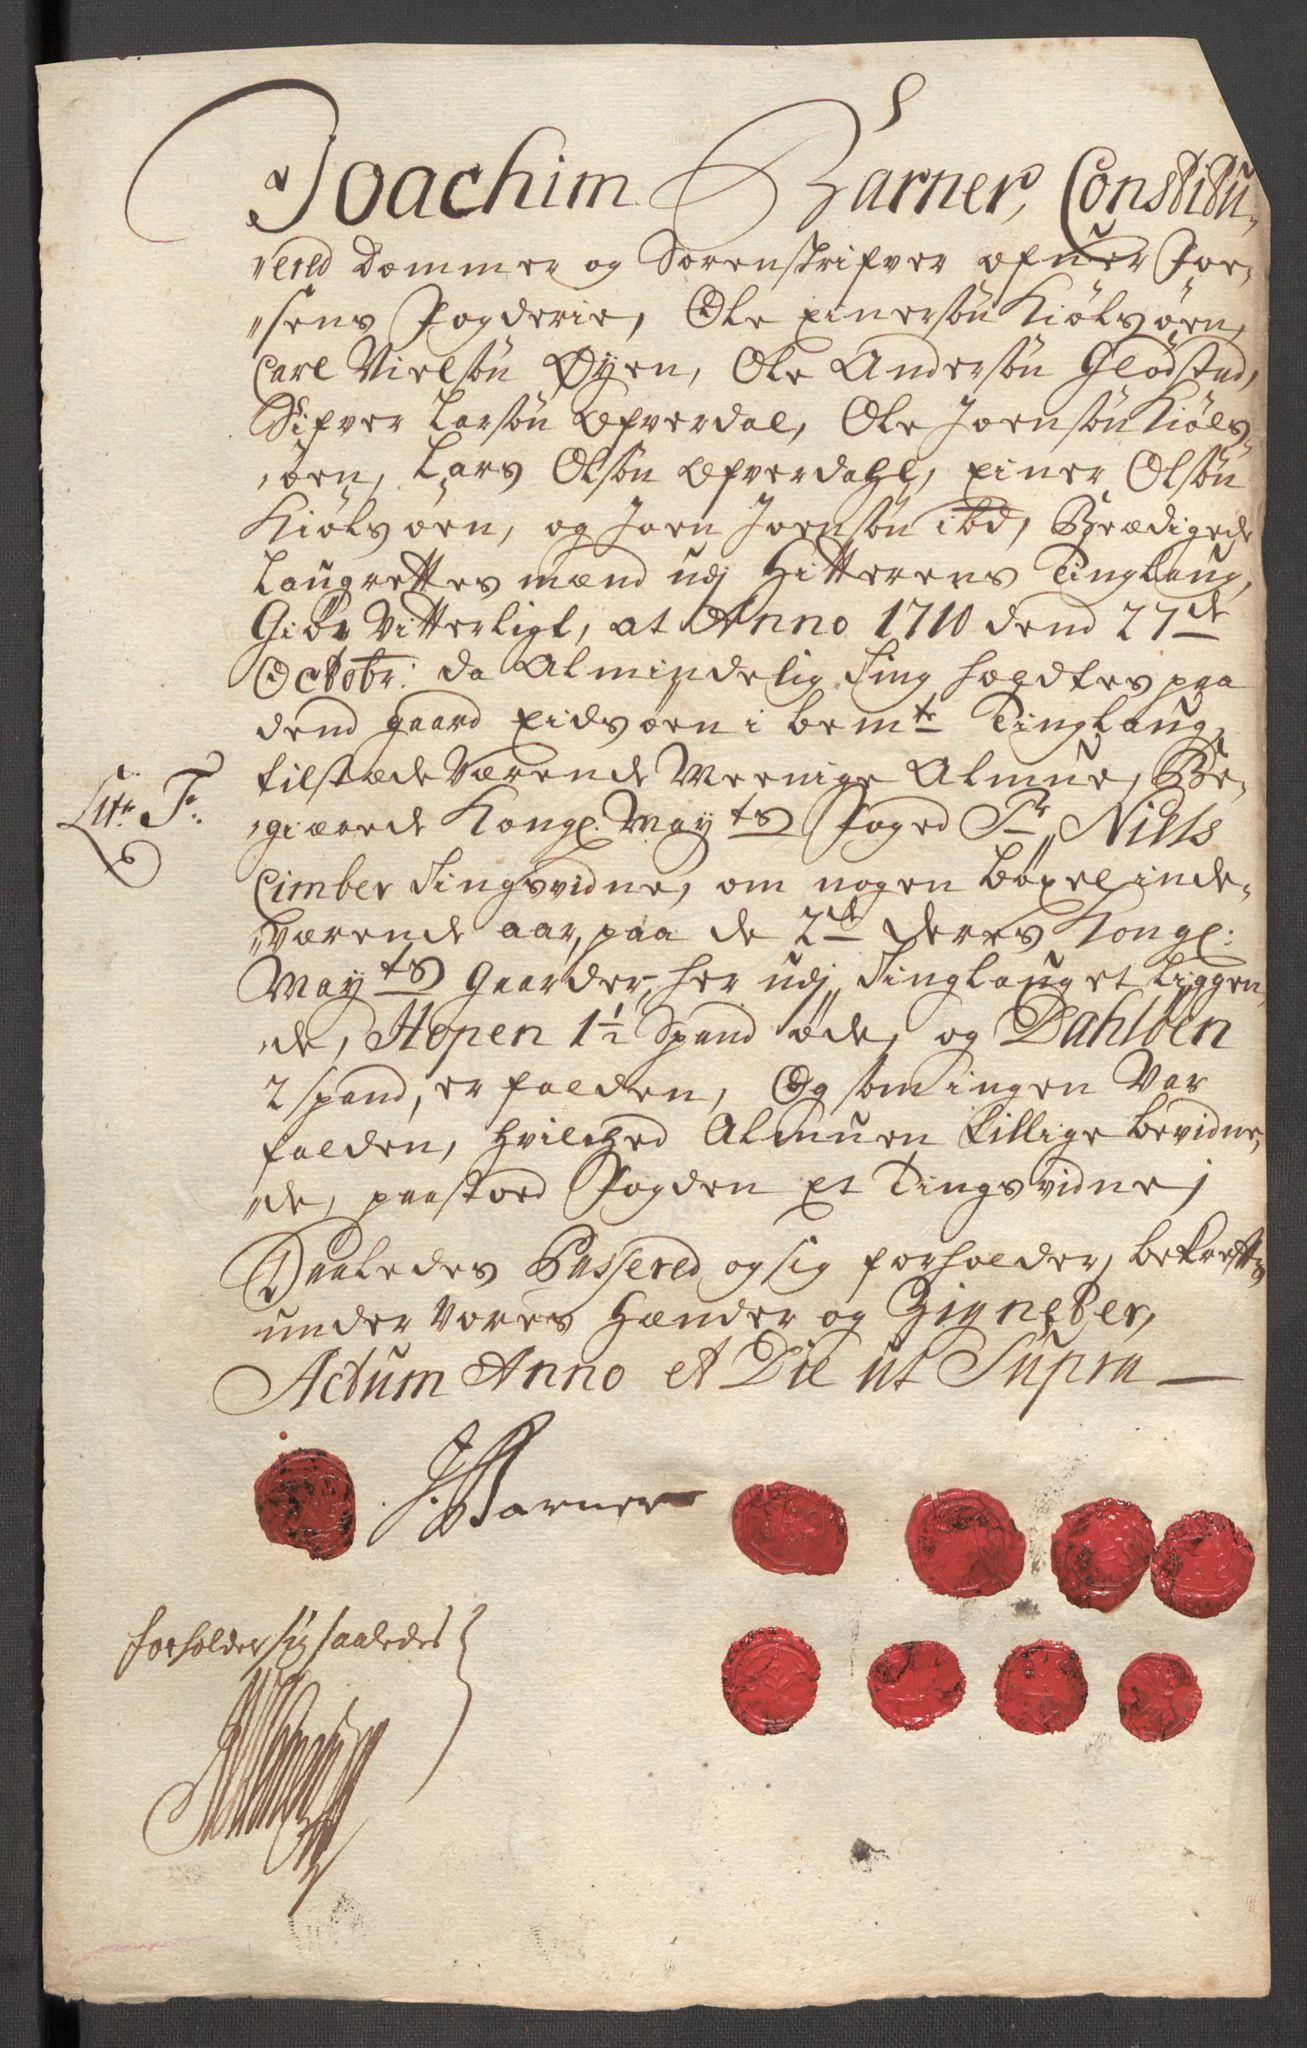 Joachim Barner, Constitu-
rered Dommer og Sorenskrifver ofuer Foe-
sens Fogderie, Ole Einersøn Kiølsøen,
Carl Nielsøn Øyen, Ole Andersøn Gledstad,
Sifver Larsøn Ofverdal, Ole Joensøn Kiøls-
øen, Lars Olsøn Ofverdahl, Einer Olsøn
Kiølsøen, og Joen Joensøn ibd, Beædigede
Laugrettes mænd udj Hitterens Tinglaug,
Giør Vitterligt, at Anno 1710 dend 27de
Octobr: da Almindelig Ting holdtes paa
dend gaard Eidsøen i bemte Tinglaug,
tilstædeværende Meenige Almue, Be-
giærede Kongl. Mayts Foged Sr. Niels
Cimber Tingsvidne, om nogen bøxel inde-
værende aar, paa de 2de deres Kongl:
Mayts Gaarder, her udj Tinglauget liggen-
de, Hopen 1½ Spand øde, og Dahlöen
2 spand, er falden, Og som ingen Var
falden, hvilched Almuen tillige bevidne-
de, paastoed Fogden et Tingsvidne,
Saaledes Passered og sig forholder, bekræfter
under Vores Hænder og Zigneter,
Actum Anno et Die ut Supra
Litr. F:
J. Barner
forholder sig saaledes